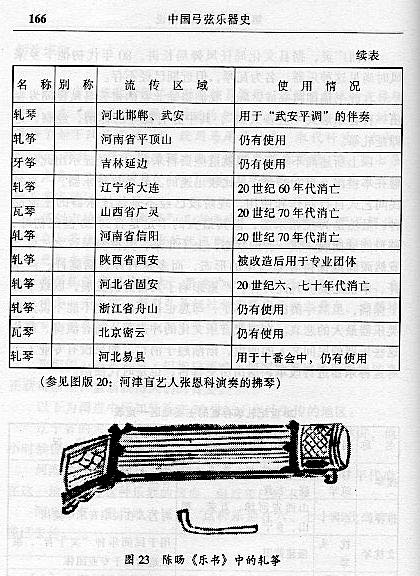 166 中国弓弦乐器史
续表
名 称 别 称 流 传 区 域 使 用 情 况
轧琴 河北邯郸、武安 用于“武安平调”的伴奏
轧筝 河南省平顶山 仍有使用
牙筝 吉林延边 仍有使用
轧筝 辽宁省大连 20世纪60年代消亡
瓦琴 山西省广灵 20世纪70年代消亡
轧筝 河南省信阳 20世纪70年代消亡
轧筝 陕西省西安 被改造后用于专业团体
轧筝 河北省固安 20世纪六、七十年代消亡
轧筝 浙江省舟山 仍有使用
瓦琴 北京密云 仍有使用
轧琴 河北易县 用于十番会中，仍有使用
（参见图版20：河津盲艺人张恩科演奏的拂琴）
图23 陈旸《乐书》中的轧筝